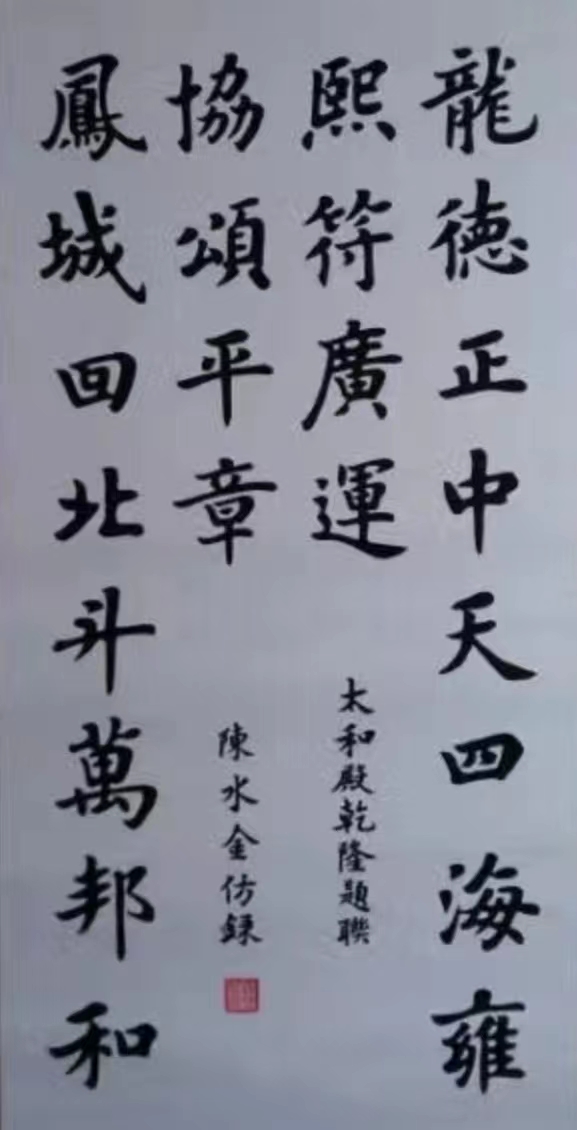 龍德正中天四海雍
熙符廣運
鳳城回北斗萬邦和
協頌平章
太和殿乾隆題聯
陳水金仿録